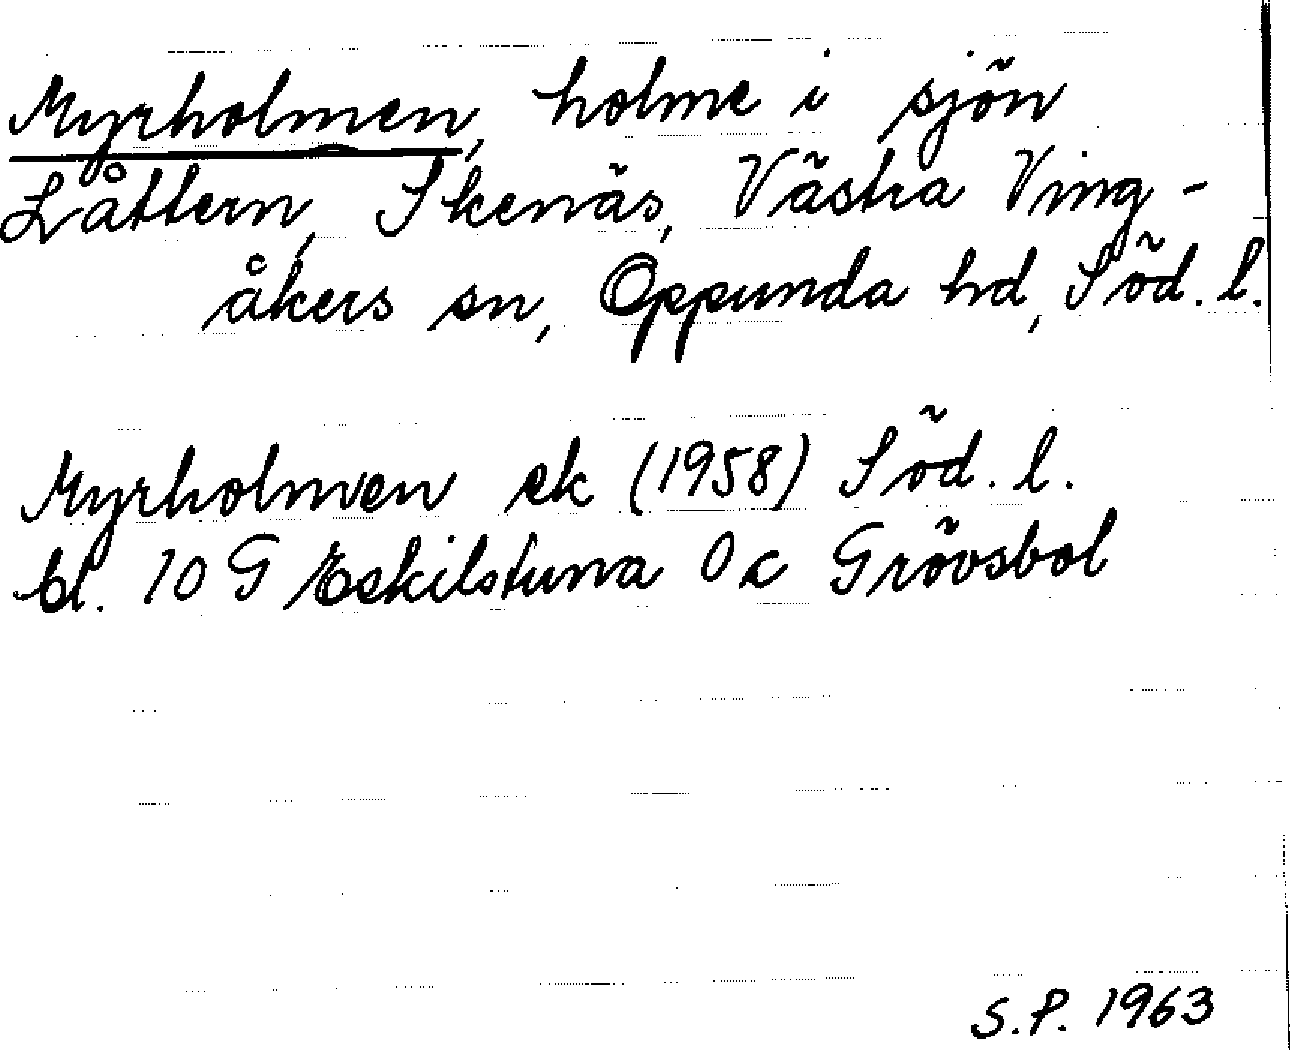 Myrholmen, holme i sjön
Låttern, Skenäs, Västra Ving-
åkers sn, Oppunda hd, Söd. l.
Myrholmen ek (1958) Söd. l.
bl. 10 G Eskilstuna 0c Grövsbol
S.P. 1963